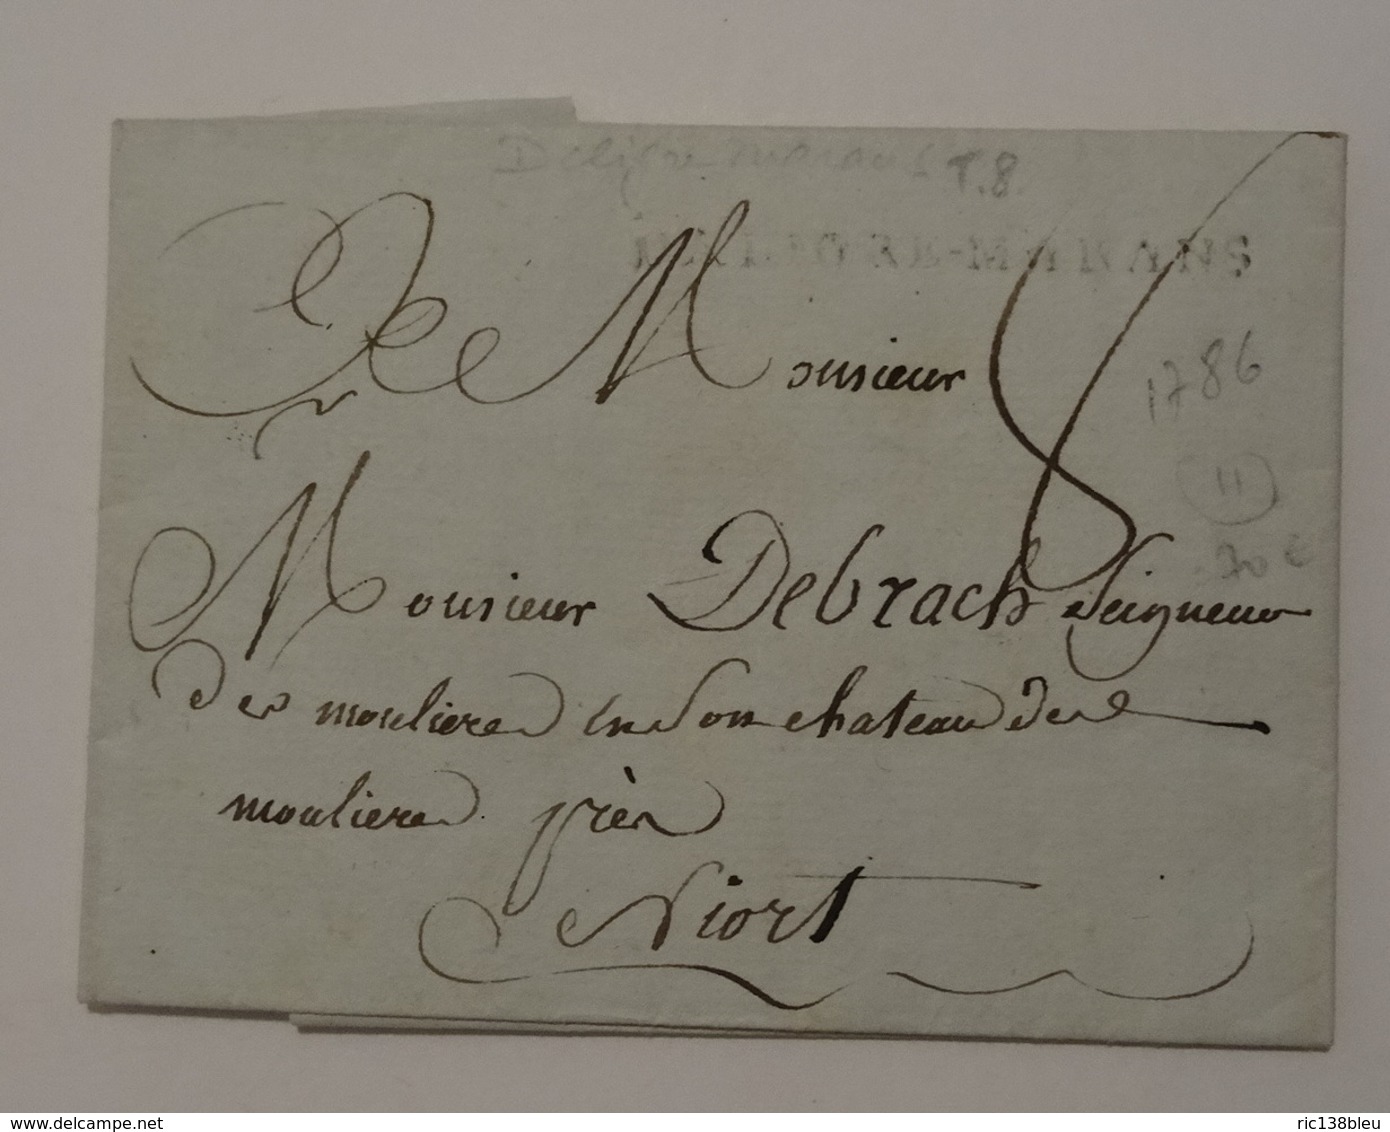 T.8
A Monsieur
1786
11
Monsieur Debrach Seigneur
des moulieres en Son chateau des
moulieres près
Niort
delcampe.net
ric138bleu